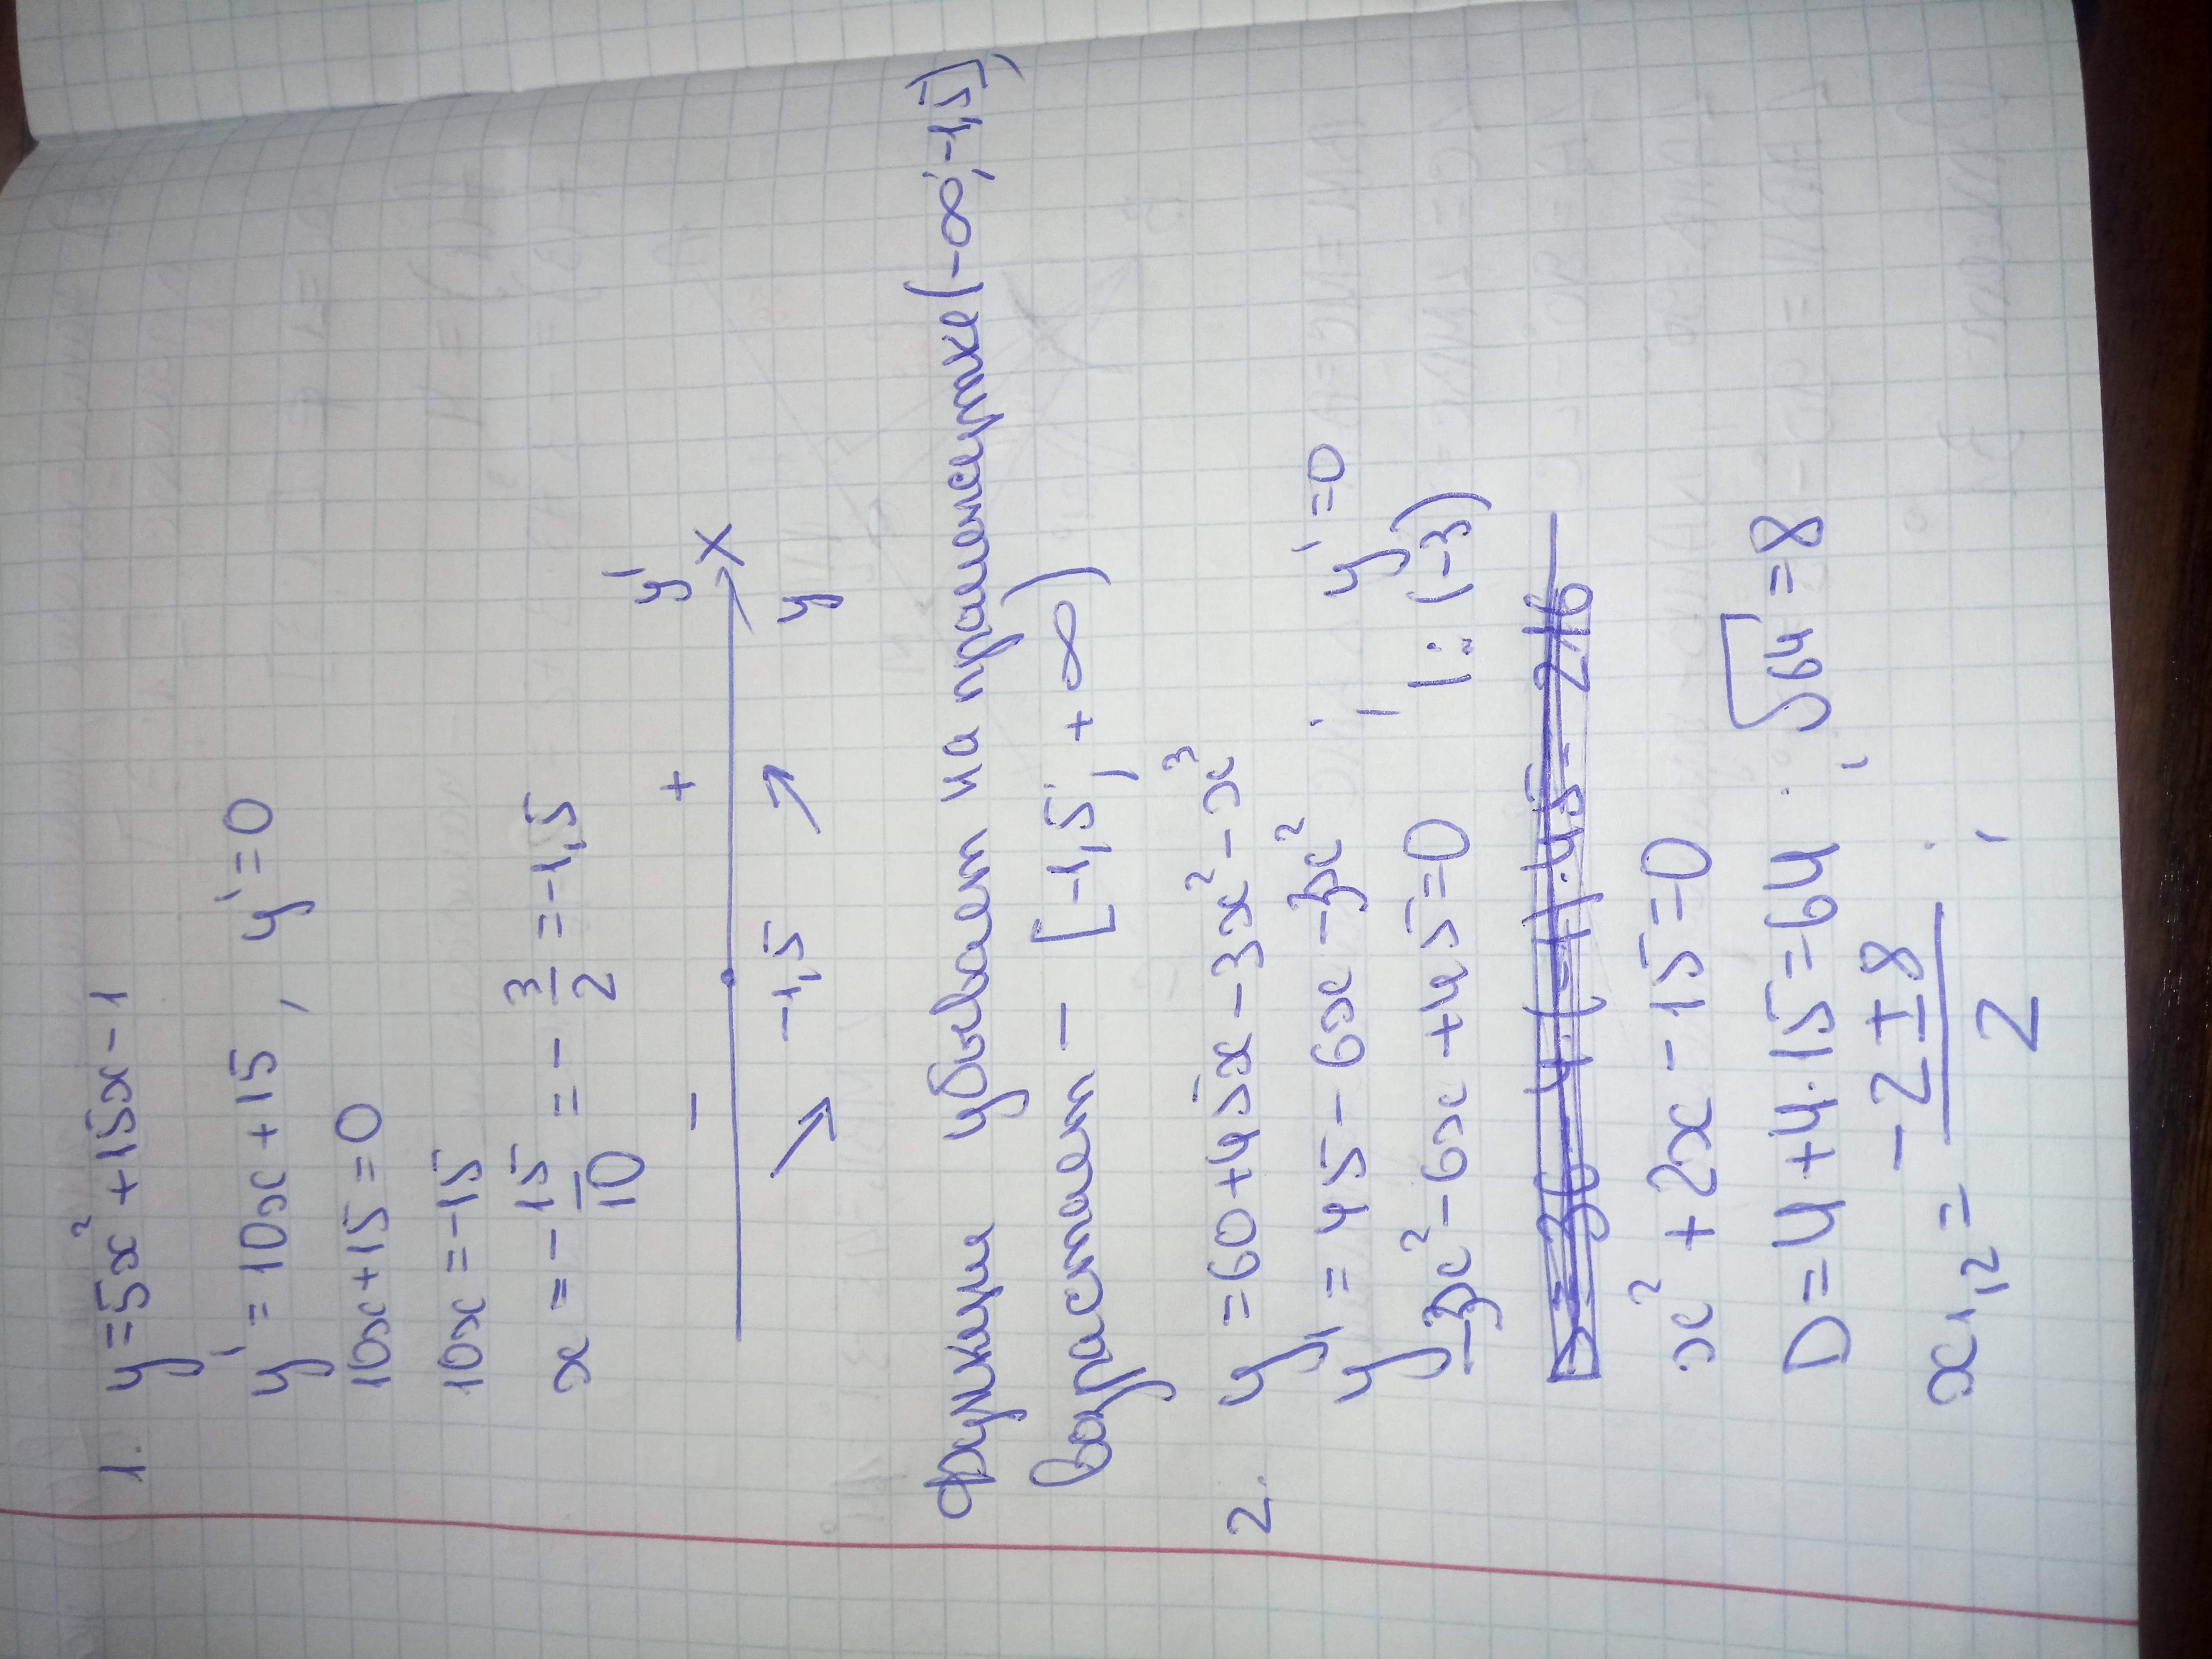 1. y=5x²+15x-1
y'=10x+15, y'=0
10x+15=0
10x=-15
x=-15/10=-3/2=-1,5
- + y'
-1,5 x
y
Функция убывает на промежутке (-∞;-1,5],
возрастает - [-1,5; +∞)
2. y=60+45x-3x²-x³
y'=45-6x-3x²; y'=0
-3x²-6x+45=0 |:(-3)
x²+2x-15=0
D=4+4·15=64; √64=8
x₁,₂=(-2±8)/2;